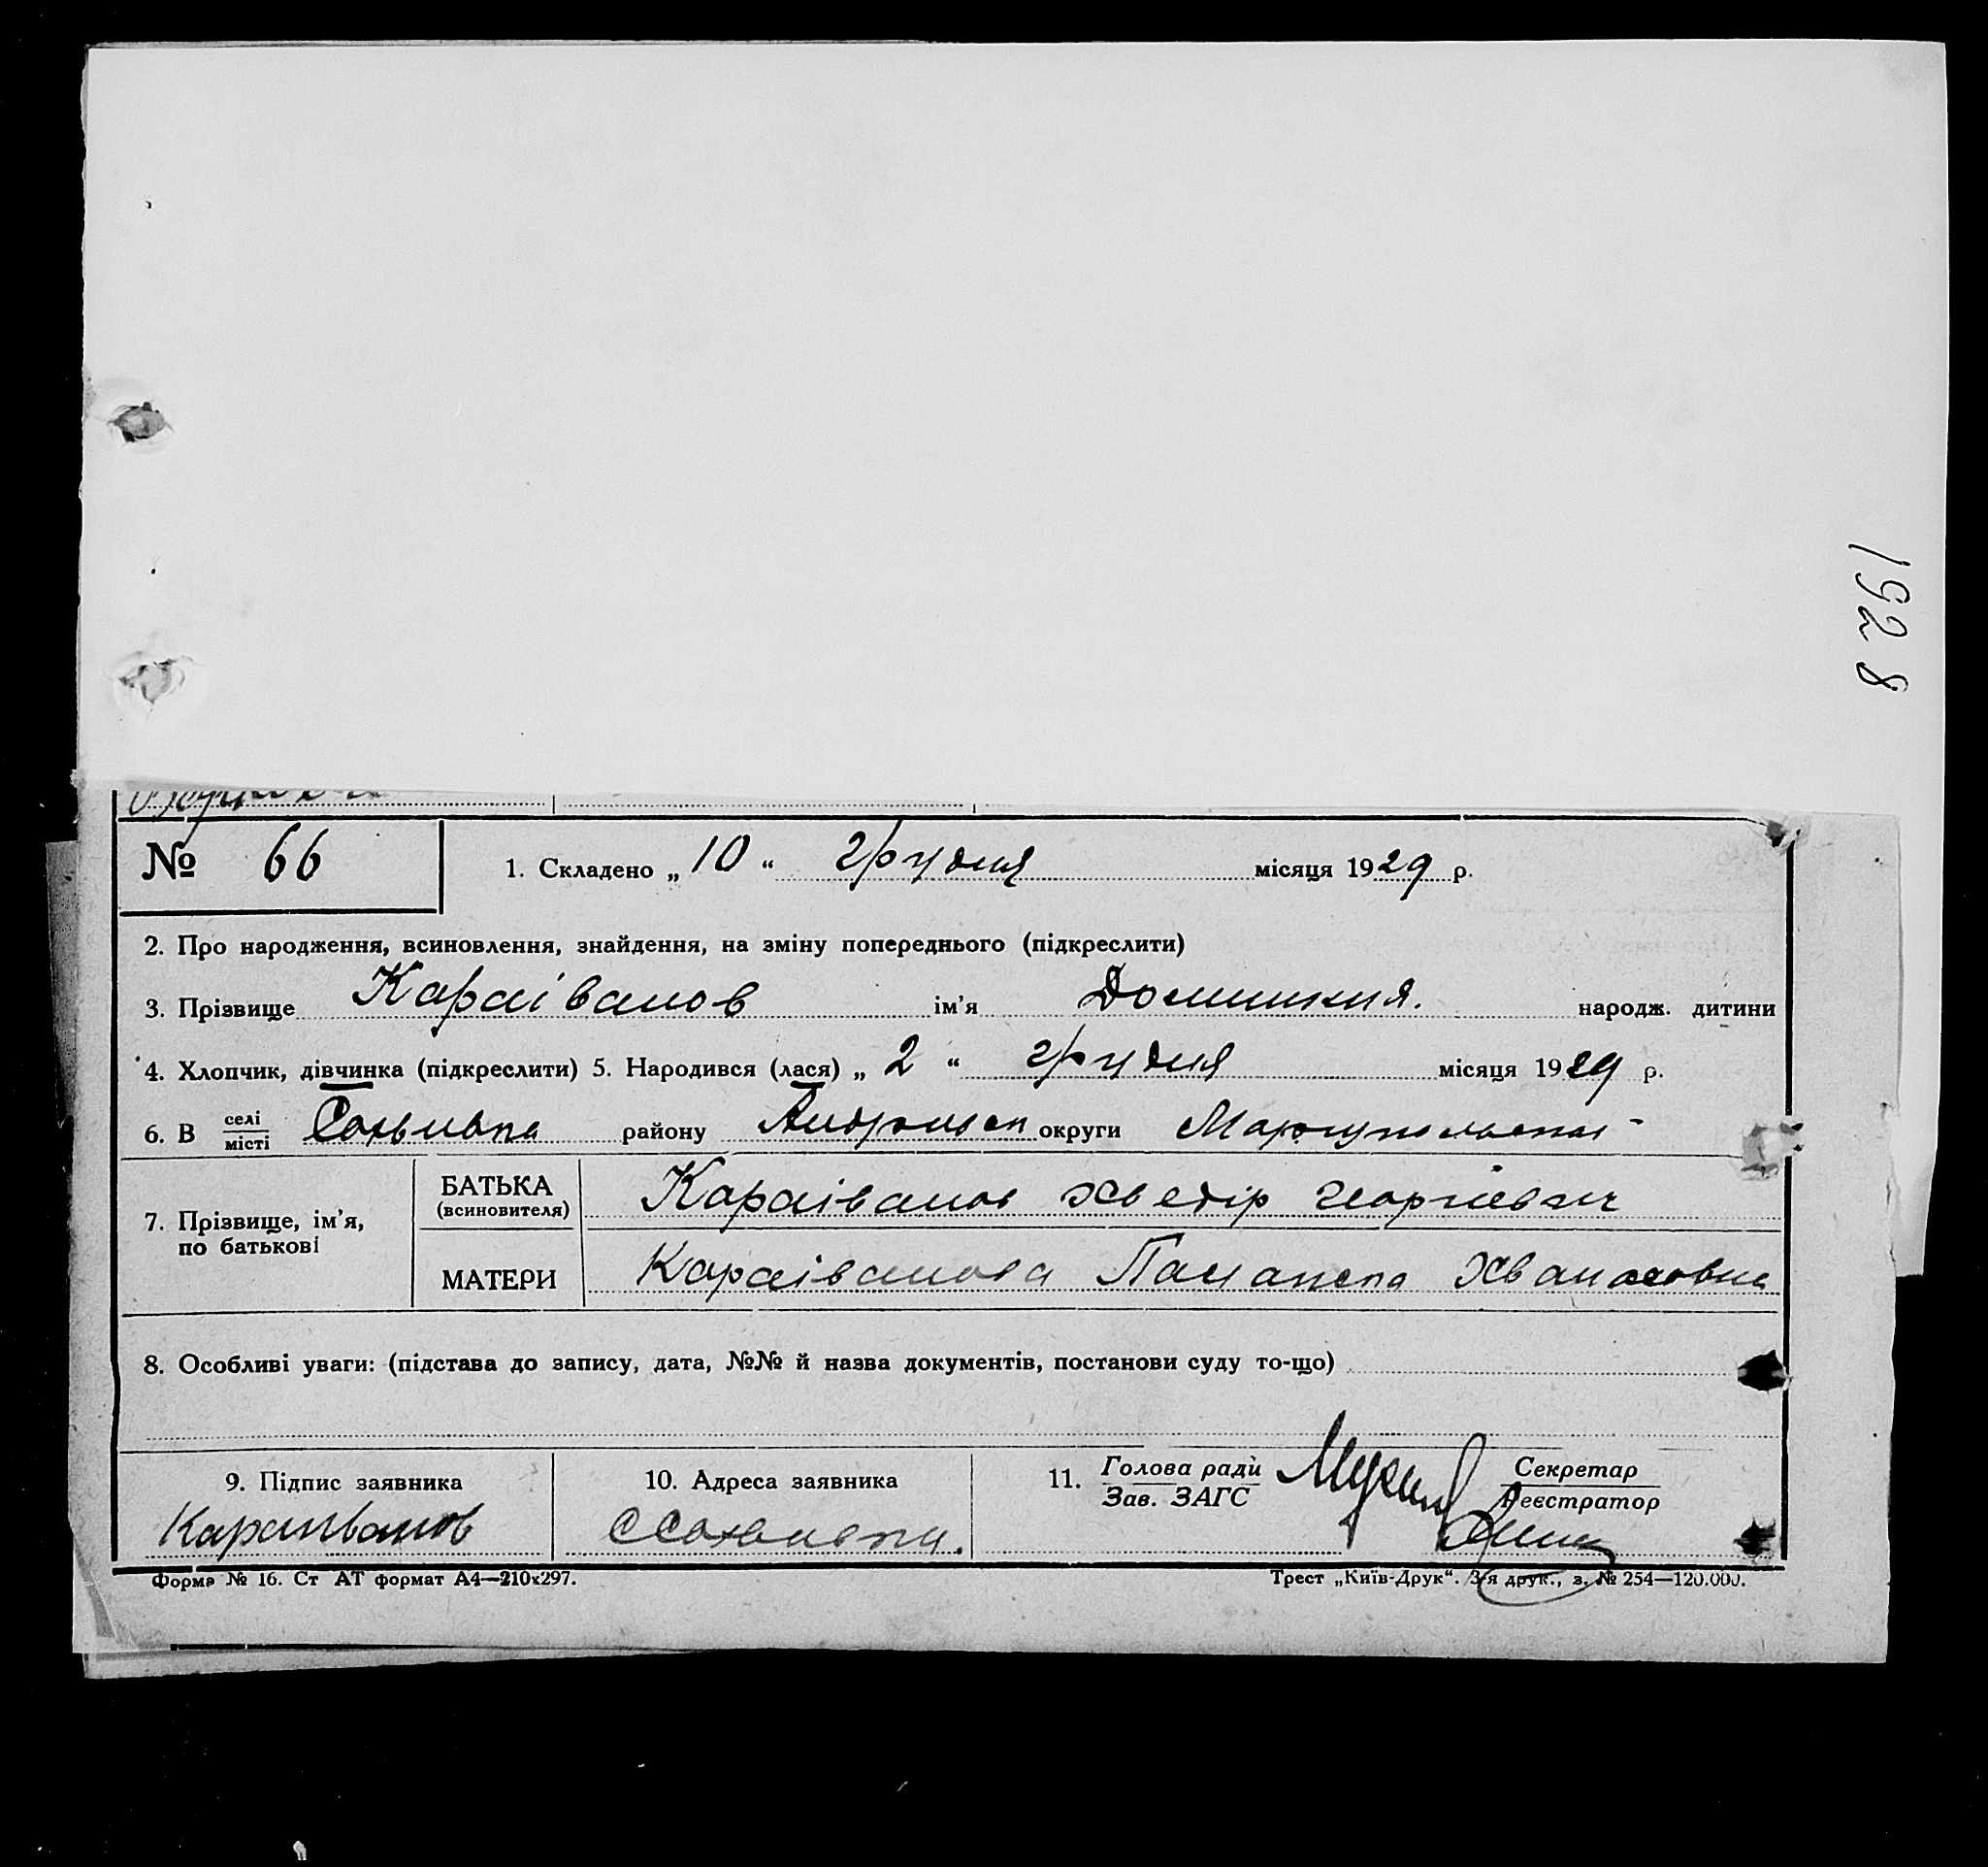 1928
№ 66
1. Складено „ 10 “ грудня місяця 1929 р.
2. Про народження, всиновлення, знайдення, на зміну попереднього (підкреслити)
3. Прізвище Караіванов ім'я Доминикія. народж. дитини
4. Хлопчик, дівчинка (підкреслити) 5. Народився (лася) „ 2 “ грудня місяця 1929 р.
6. В селі місті району округи
7. Прізвище, ім'я, по батькові
БАТЬКА (всиновителя) Караіванов Хведір Георгіевич
МАТЕРИ Караіванова
8. Особливі уваги: (підстава до запису, дата, №№ й назва документів, постанови суду то-що)
9. Підпис заявника
Караиванов
10. Адреса заявника
11. Голова ради
Зав. ЗАГС
Секретар
Реєстратор
Форма № 16. Ст АТ формат А4—210х297.
Трест „Київ-Друк“. 3-я друк., з. № 254—120.000.